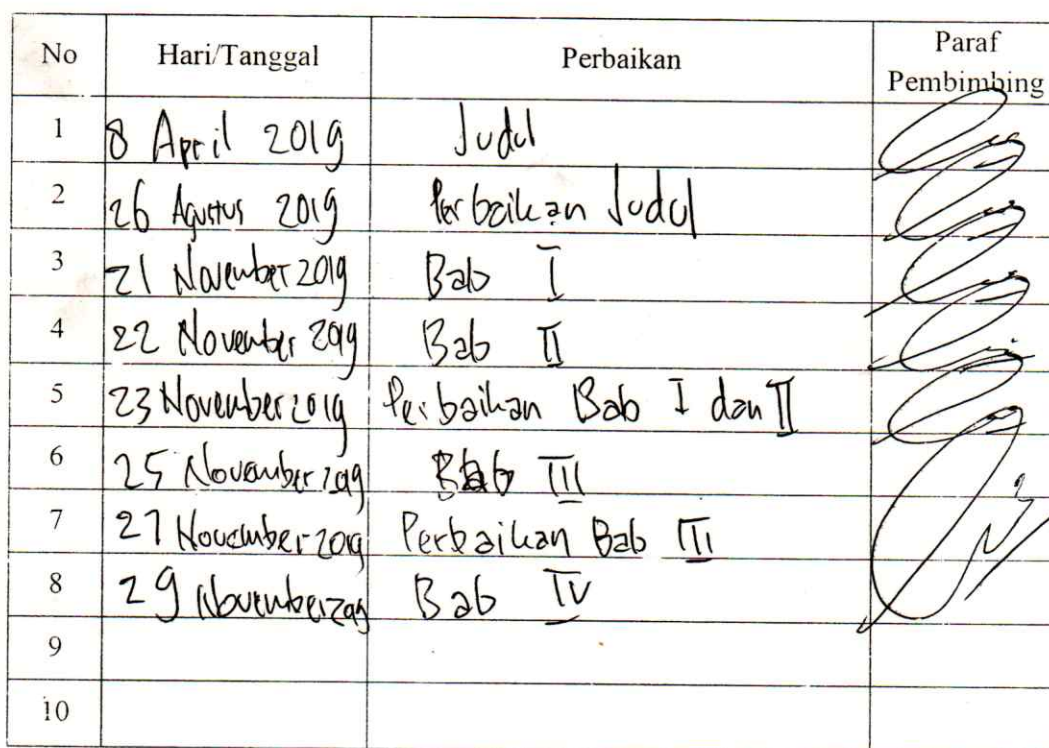 No Hari/Tanggal Perbaikan Paraf Pembimbing
1 8 April 2019 Judul
2 26 Agustus 2019 Perbaikan Judul
3 21 November 2019 Bab I
4 22 November 2019 Bab II
5 23 November 2019 Perbaikan Bab I dan II
6 25 November 2019 Bab III
7 27 November 2019 Perbaikan Bab III
8 29 November 2019 Bab IV
9
10